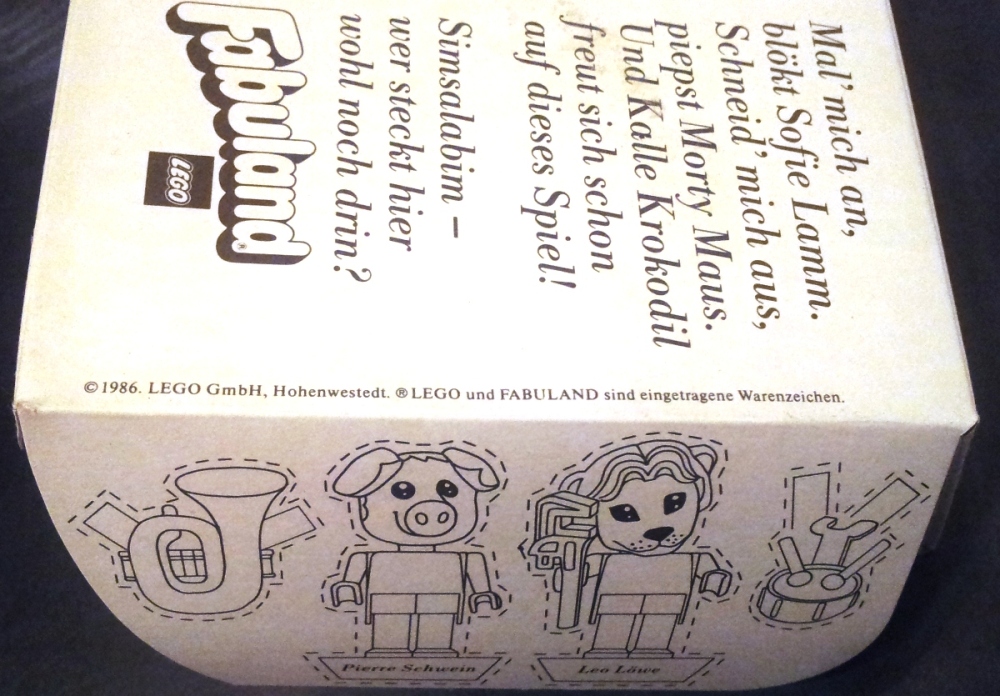 Mal' mich an,
blökt Sofie Lamm.
Schneid' mich aus,
piepst Morty Maus.
Und Kalle Krokodil
freut sich schon
auf dieses Spiel!
Simsalabim –
wer steckt hier
wohl noch drin?
Fabuland®
LEGO
©1986. LEGO GmbH, Hohenwestedt. ®LEGO und FABULAND sind eingetragene Warenzeichen.
Pierre Schwein
Leo Löwe